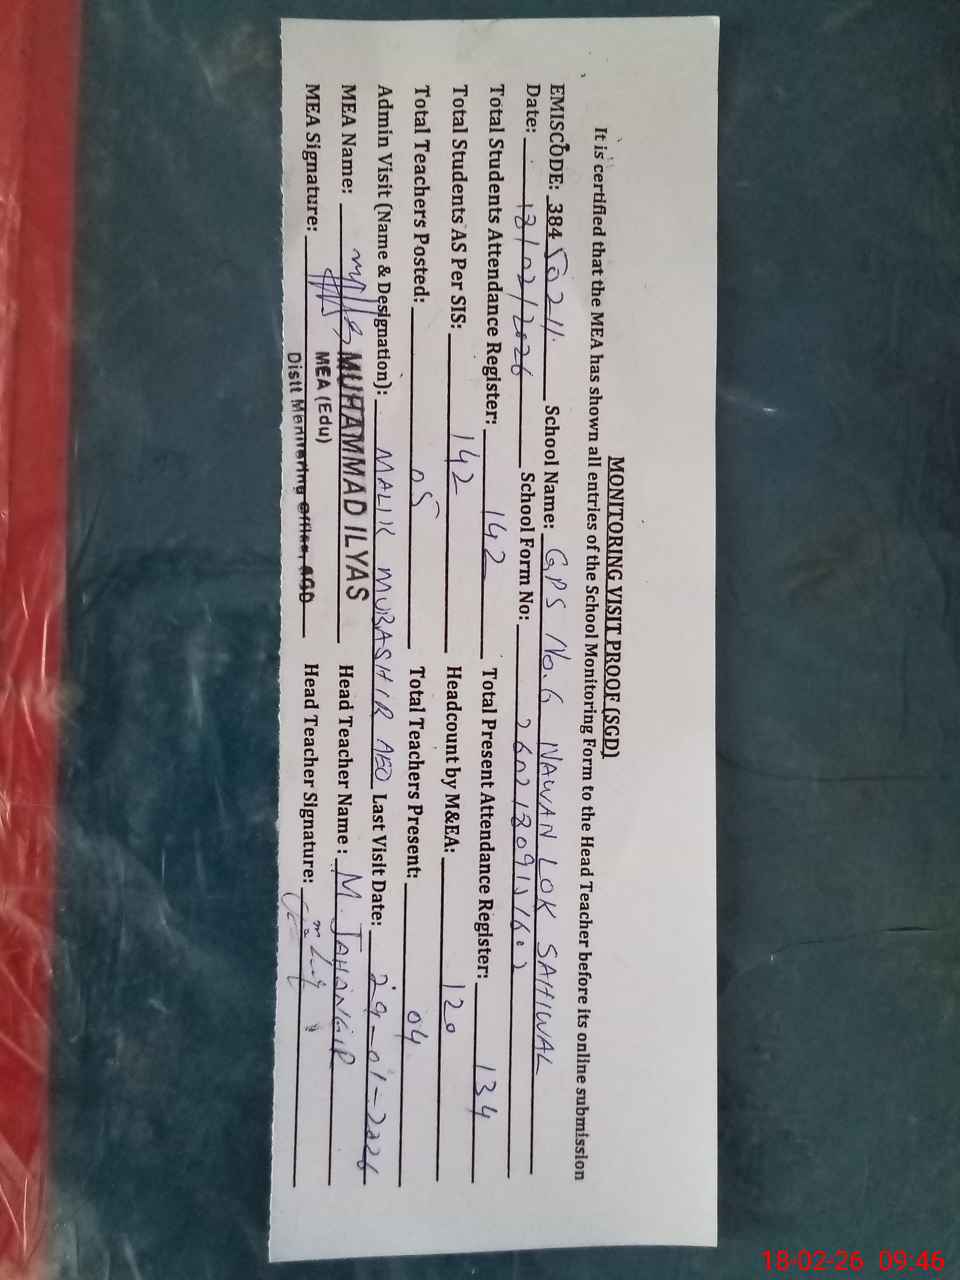 MONITORING VISIT PROOF (SGD)
It is certified that the MEA has shown all entries of the School Monitoring Form to the Head Teacher before its online submission
EMISCODE: 384 50211 School Name: GPS No. 6 NAWAN LOK SAHIWAL
Date: 18/02/2026 School Form No:
Total Students Attendance Register: 142 Total Present Attendance Register: 134
Total Students AS Per SIS: 142 Headcount by M&EA: 120
Total Teachers Posted: 05 Total Teachers Present: 04
Admin Visit (Name & Designation): MALIK MUBASHIR AEO Last Visit Date: 29-01-2026
MEA Name: MUHAMMAD ILYAS Head Teacher Name: M. JAHANGIR
MEA Signature: MEA (Edu) Head Teacher Signature:
Distt Monitoring Office, SGD
18-02-26 09:46